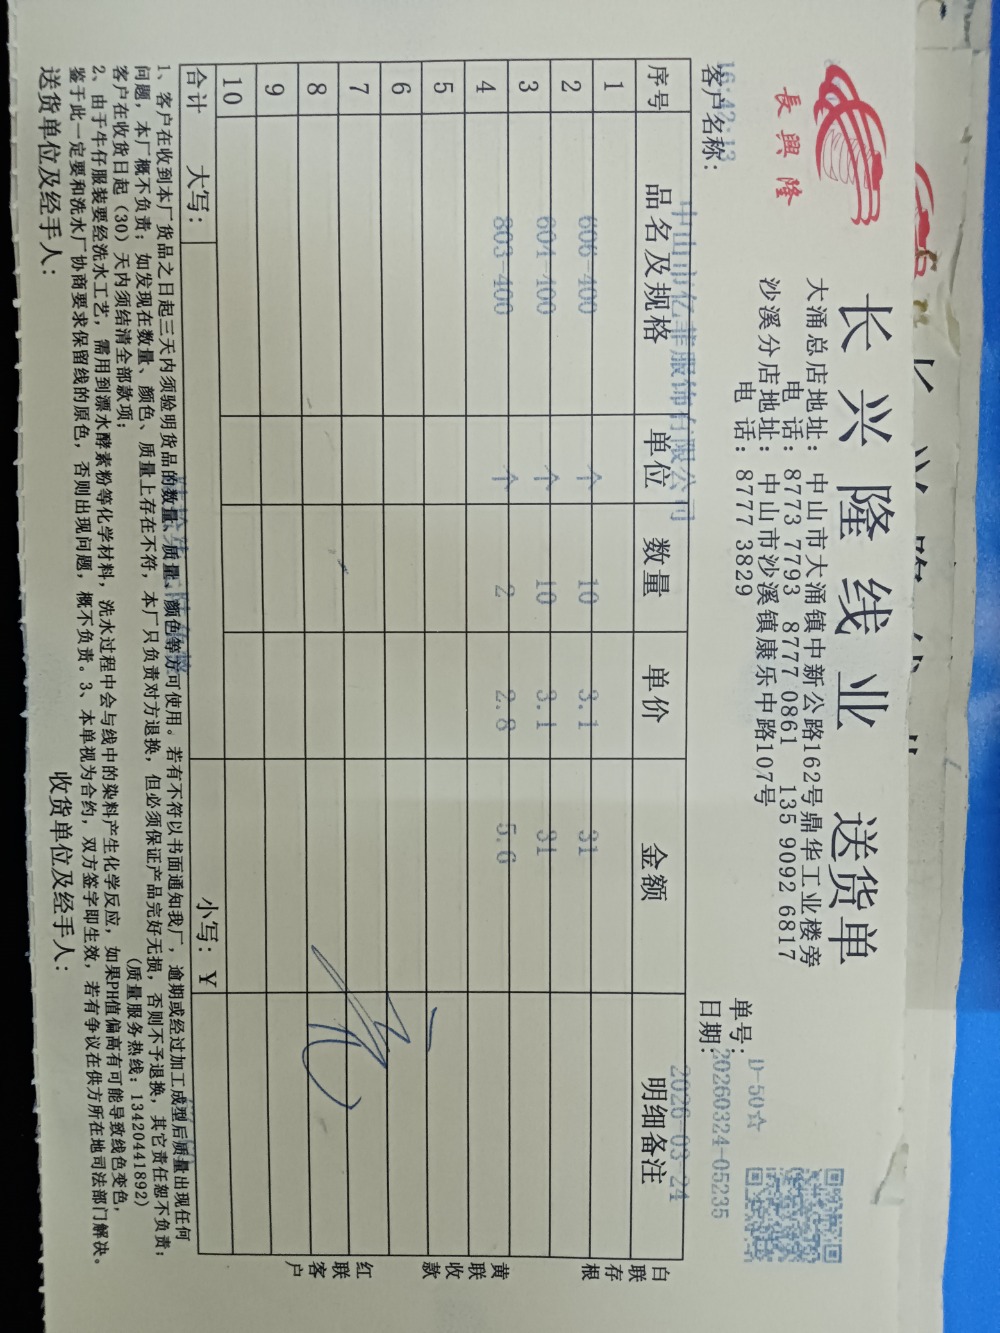 長興隆
长兴隆线业 送货单
大涌总店地址：中山市大涌镇中新公路162号鼎华工业楼旁
电 话：8773 7793 8777 0861 135 9092 6817
沙溪分店地址：中山市沙溪镇康乐中路107号
电 话：8777 3829
D-50☆
单号：20260324-05235
16:42:13
客户名称：
日期：2026-03-24
中山市亿菲服饰有限公司
序号 品名及规格 单位 数量 单价 金额 明细备注
1 606-400 个 10 3.1 31
2 604-400 个 10 3.1 31
3 803-400 个 2 2.8 5.6
4
5
6
7
8
9
10
合计 大写： 小写：¥
白联存根
黄联收款
红联客户
1、客户在收到本厂货品之日起三天内须验明货品的数量、质量、颜色等方可使用。若有不符以书面通知我厂，逾期或经过加工成型后质量出现任何
问题，本厂概不负责；如发现在数量、颜色、质量上存在不符，本厂只负责对方退换，但必须保证产品完好无损，否则不予退换，其它责任恕不负责；
客户在收货日起（30）天内须结清全部款项；
（质量服务热线：13420441892）
2、由于牛仔服装要经洗水工艺，需用到漂水酵素粉等化学材料，洗水过程中会与线中的染料产生化学反应，如果PH值偏高有可能导致线色变色，
鉴于此一定要和洗水厂协商要求保留线的原色，否则出现问题，概不负责。3、本单视为合约，双方签字即生效，若有争议在供方所在地司法部门解决。
送货单位及经手人：
收货单位及经手人：